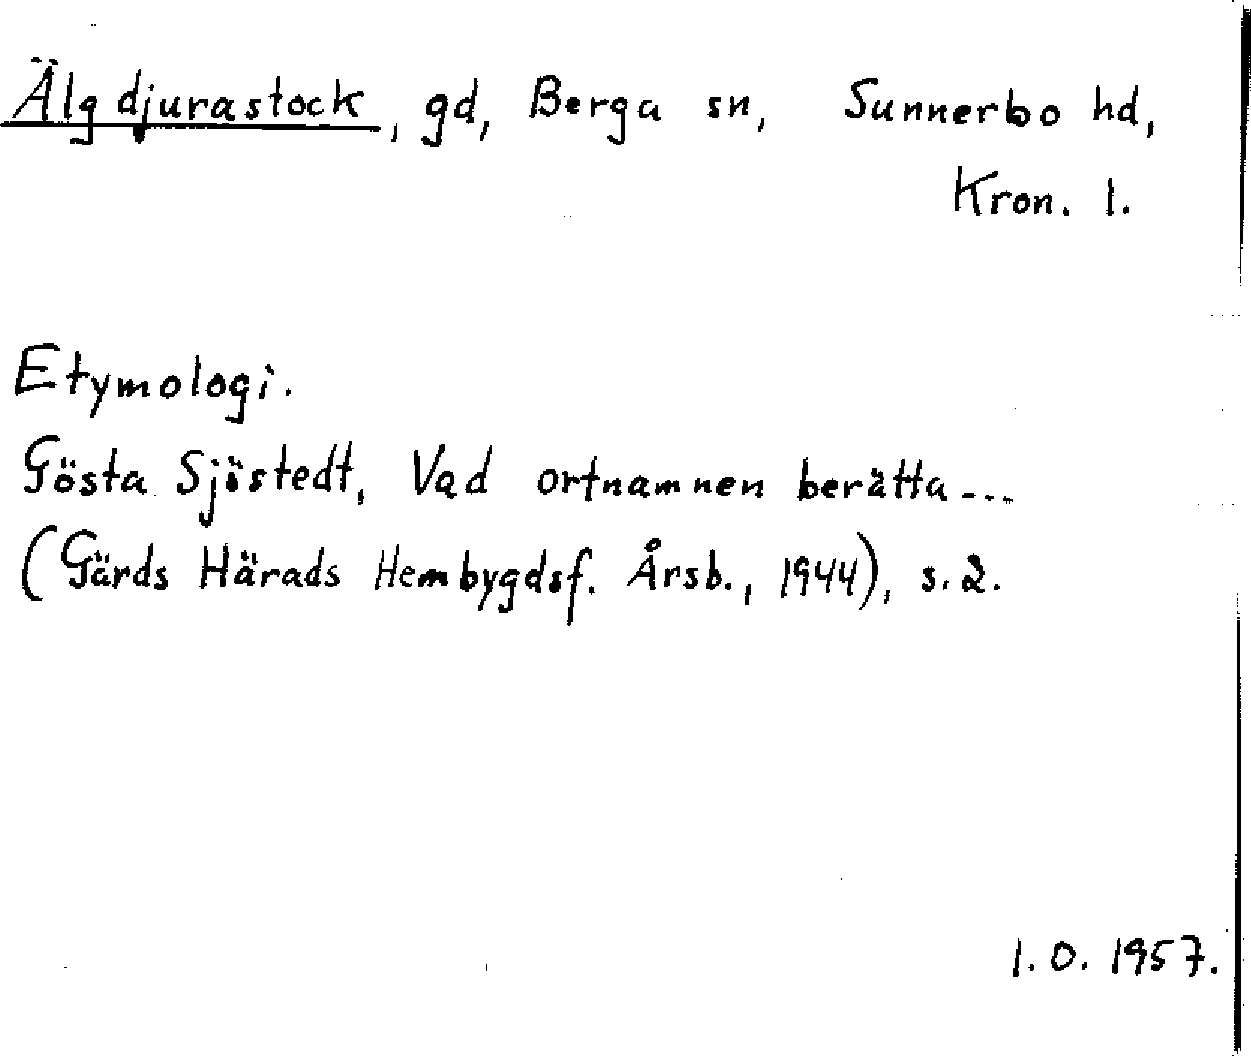 Älgdjurastock, gd, Berga sn, Sunnerbo hd,
Kron. l.
Etymologi.
Gösta Sjöstedt, Vad ortnamnen berätta ...
(Gärds Härads Hembygdsf. Årsb., 1944), s. 2.
I. O. 1957.